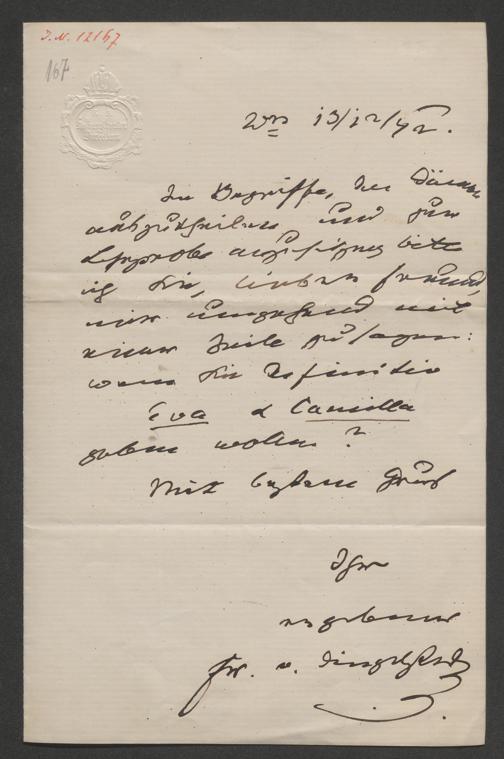 J.N. 12167
167
Wn 13/12/72.
Im Begriffe, die Dämon
auszutheilen und zur
Leseprobe anzusetzen bitte
ich Sie, lieber Freund,
mir umgehend mit
einer Zeile zu sagen:
wem Sie definitiv
Eva & Camilla
geben wollen?
Mit bestem Gruß
Ihr
ergebener
Fr. v. Dingelstedt